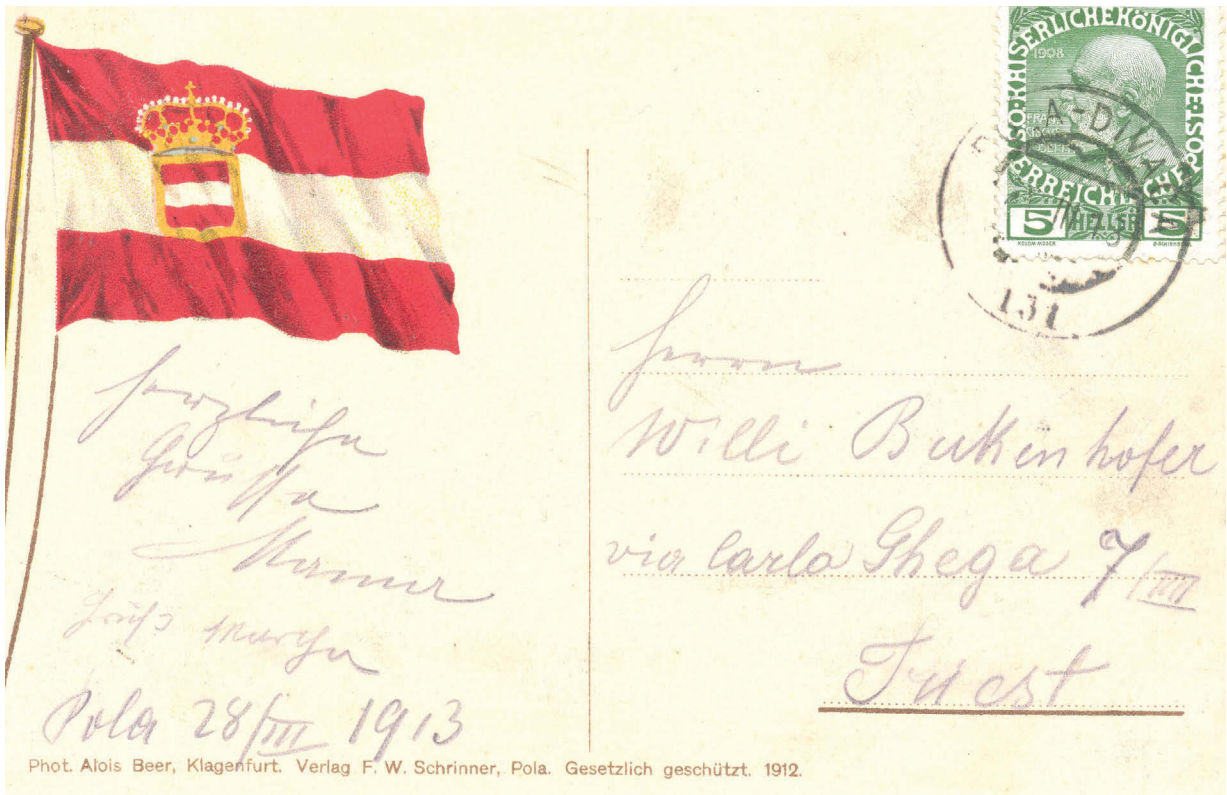 KAISERLICHE KÖNIGLICHE
ÖSTERREICHISCHE POST
1908
FRANZ
JOSEF I
5 HELLER 5
KOLOM MOSER
131
Herzliche
Grüsse
Gruß
Pola 28/III 1913
Herrn
Willi Bukenhofer
via Carlo Ghega 7/III
Triest
Phot. Alois Beer, Klagenfurt. Verlag F. W. Schrinner, Pola. Gesetzlich geschützt. 1912.